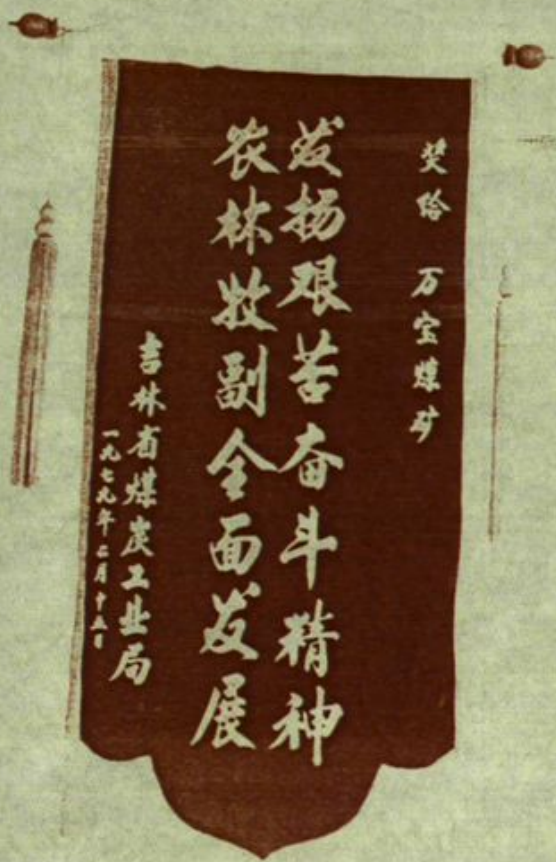 奖给 万宝煤矿
发扬艰苦奋斗精神
农林牧副全面发展
吉林省煤炭工业局
一九七九年二月十五日